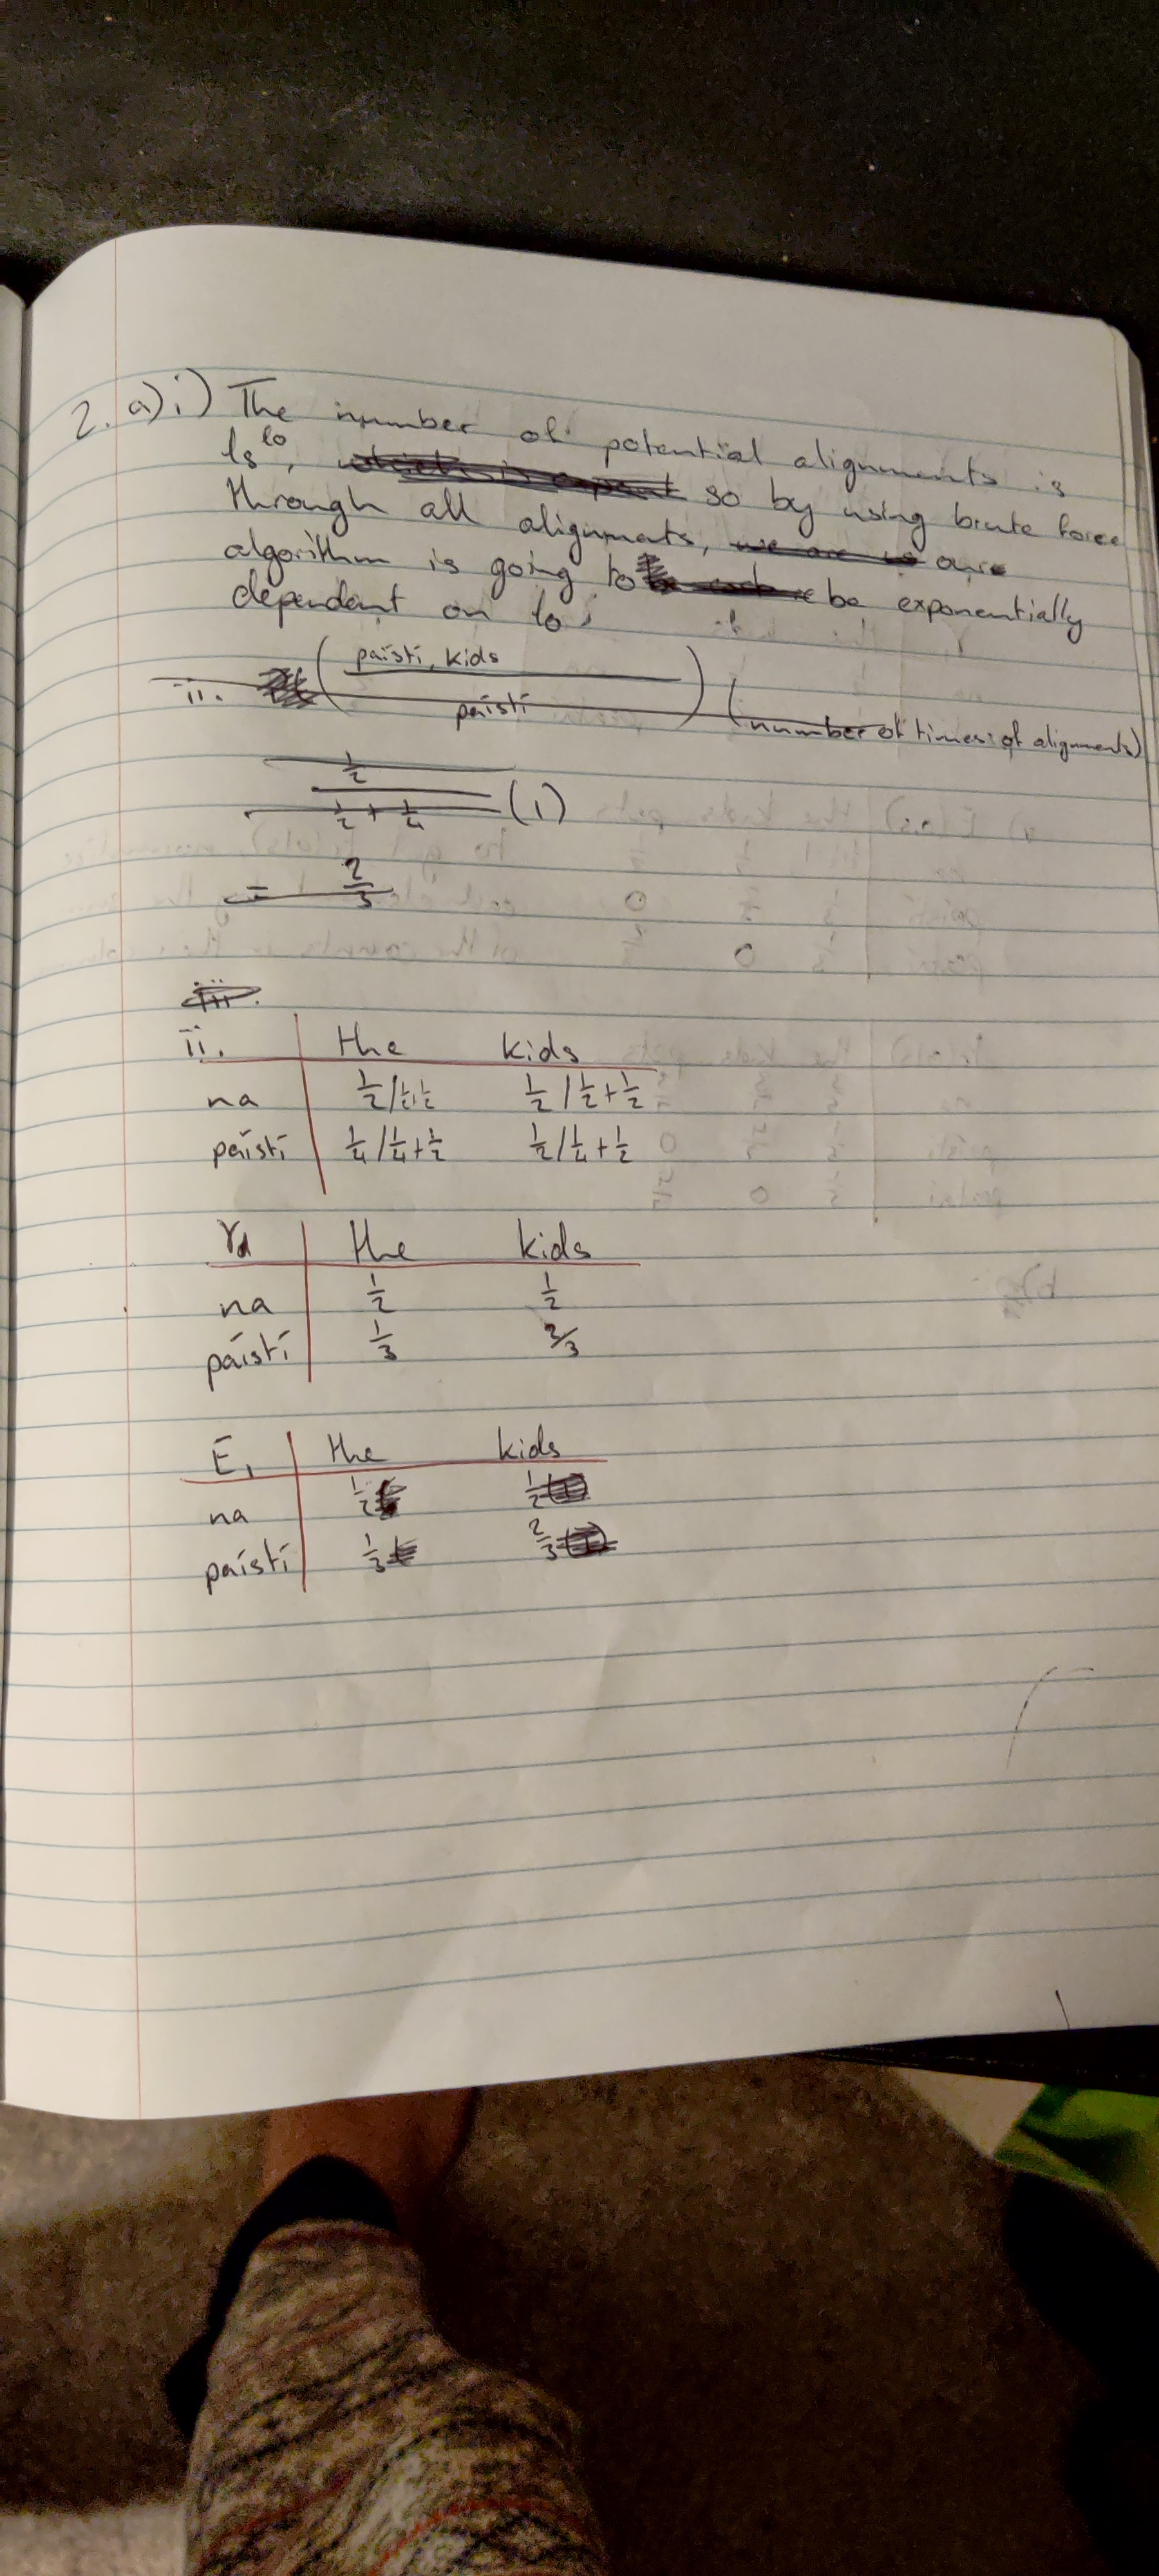 2. a) i) The number of potential alignments is
ls^lo, so by using brute force
through all alignments, our
algorithm is going to be exponentially
dependent on lo.
ii. (páistí, kids / páistí) (number of times of alignments)
1/2 / 1/2 + 1/4 (1)
= 2/3
iii.
ii. the kids
na 1/2 / 1/2+1/2 1/2 / 1/2 + 1/2
páistí 1/4 / 1/4 + 1/2 1/2 / 1/4 + 1/2
γd the kids
na 1/2 1/2
páistí 1/3 2/3
E1 the kids
na 1/2 1/2
páistí 1/3 2/3